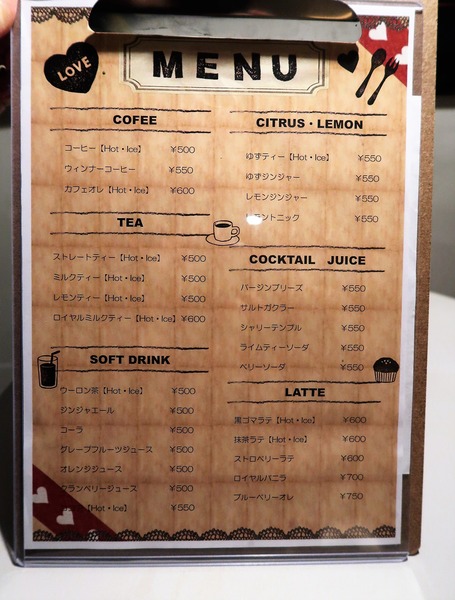 LOVE
MENU
COFEE
コーヒー【Hot・Ice】 ¥500
ウィンナーコーヒー ¥550
カフェオレ【Hot・Ice】 ¥600
TEA
ストレートティー【Hot・Ice】 ¥500
ミルクティー【Hot・Ice】 ¥500
レモンティー【Hot・Ice】 ¥500
ロイヤルミルクティー【Hot・Ice】 ¥600
SOFT DRINK
ウーロン茶【Hot・Ice】 ¥500
ジンジャエール ¥500
コーラ ¥500
グレープフルーツジュース ¥500
オレンジジュース ¥500
クランベリージュース ¥500
【Hot・Ice】 ¥550
CITRUS・LEMON
ゆずティー【Hot・Ice】 ¥550
ゆずジンジャー ¥550
レモンジンジャー ¥550
トニック ¥550
COCKTAIL JUICE
バージンブリーズ ¥550
サルトガクラー ¥550
シャリーテンプル ¥550
ライムティーソーダ ¥550
ベリーソーダ ¥550
LATTE
黒ゴマラテ【Hot・Ice】 ¥600
抹茶ラテ【Hot・Ice】 ¥600
ストロベリーラテ ¥600
ロイヤルバニラ ¥700
ブルーベリーオレ ¥750